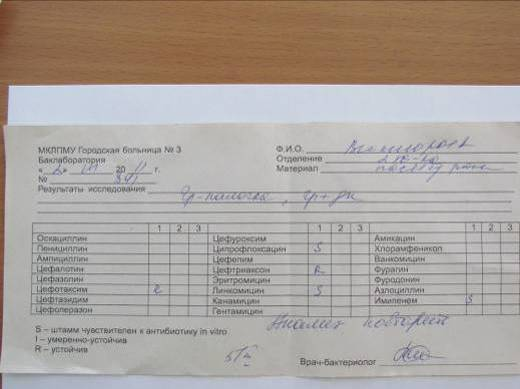 МКЛПМУ Городская больница № 3
Баклаборатория
« » III 20 11 г.
№ 391
Результаты исследования Гр-палочка, гр+
Ф.И.О.
Отделение
Материал
1 2 3 1 2 3 1 2 3
Оскациллин Цефуроксим Амикацин
Пенициллин Ципрофлоксацин S Хлорамфеникол
Ампициллин Цефепим Ванкомицин
Цефалотин Цефтриаксон R Фурагин
Цефазолин Эритромицин Фуродонин
Цефотаксим R Линкомицин S Азлоциллин
Цефтазидим Канамицин Имипенем S
Цефоперазон Гентамицин
S – штамм чувствителен к антибиотику in vitro
I – умеренно-устойчив
R – устойчив
Анализ повторит
Врач-бактериолог